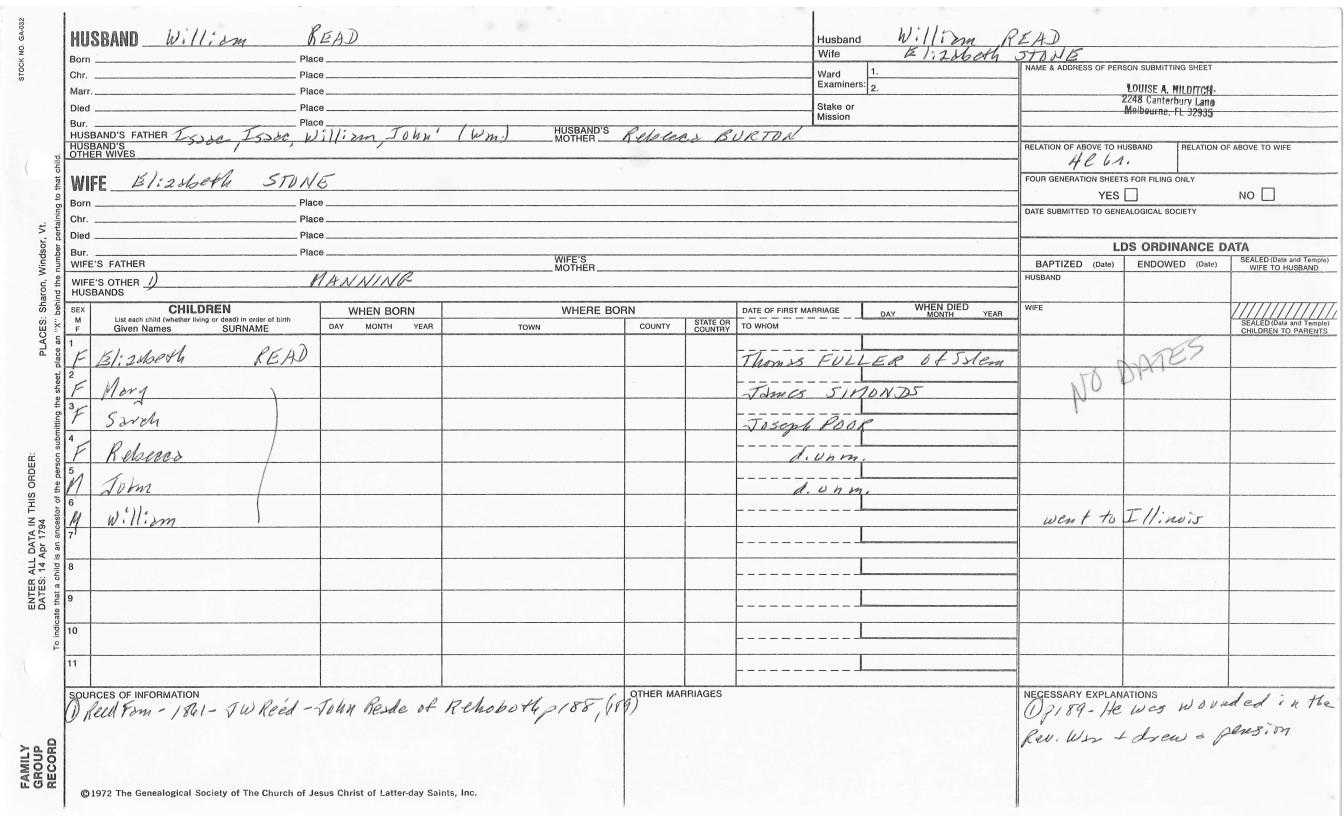 STOCK NO. GA-032
HUSBAND William READ
Born Place
Chr. Place
Marr. Place
Died Place
Bur. Place
HUSBAND'S FATHER Isaac, Isaac, William, John' (Wm.) HUSBAND'S MOTHER Rebecca BURTON
HUSBAND'S OTHER WIVES
WIFE Elizabeth STONE
Born Place
Chr. Place
Died Place
Bur. Place
WIFE'S FATHER WIFE'S MOTHER
WIFE'S OTHER HUSBANDS 1) MANNING
Husband William READ
Wife Elizabeth STONE
Ward Examiners: 1.
2.
Stake or Mission
NAME & ADDRESS OF PERSON SUBMITTING SHEET
LOUISE A. HILDITCH
2248 Canterbury Lane
Melbourne, FL 32935
RELATION OF ABOVE TO HUSBAND RELATION OF ABOVE TO WIFE
FOUR GENERATION SHEETS FOR FILING ONLY
YES NO
DATE SUBMITTED TO GENEALOGICAL SOCIETY
LDS ORDINANCE DATA
BAPTIZED (Date) ENDOWED (Date) SEALED (Date and Temple) WIFE TO HUSBAND
HUSBAND
WIFE
SEALED (Date and Temple) CHILDREN TO PARENTS
SEX M F
CHILDREN
List each child (whether living or dead) in order of birth
Given Names SURNAME
WHEN BORN
DAY MONTH YEAR
WHERE BORN
TOWN COUNTY STATE OR COUNTRY
DATE OF FIRST MARRIAGE
TO WHOM
WHEN DIED
DAY MONTH YEAR
1 F Elizabeth READ Thomas FULLER of Salem
NO DATES
2 F Mary James SIMONDS
3 F Sarah Joseph POOR
4 F Rebecca d. unm.
5 M John d. unm.
6 M William went to Illinois
7
8
9
10
11
SOURCES OF INFORMATION
① Reed Fam - 1861 - JW Reed - John Reade of Rehoboth p188, (189)
OTHER MARRIAGES
NECESSARY EXPLANATIONS
① p189 - He was wounded in the
Rev. War + drew a pension
©1972 The Genealogical Society of The Church of Jesus Christ of Latter-day Saints, Inc.
FAMILY GROUP RECORD
ENTER ALL DATA IN THIS ORDER:
DATES: 14 Apr 1794
PLACES: Sharon, Windsor, Vt.
To indicate that a child is an ancestor of the person submitting the sheet, place an "X" behind the number pertaining to that child.